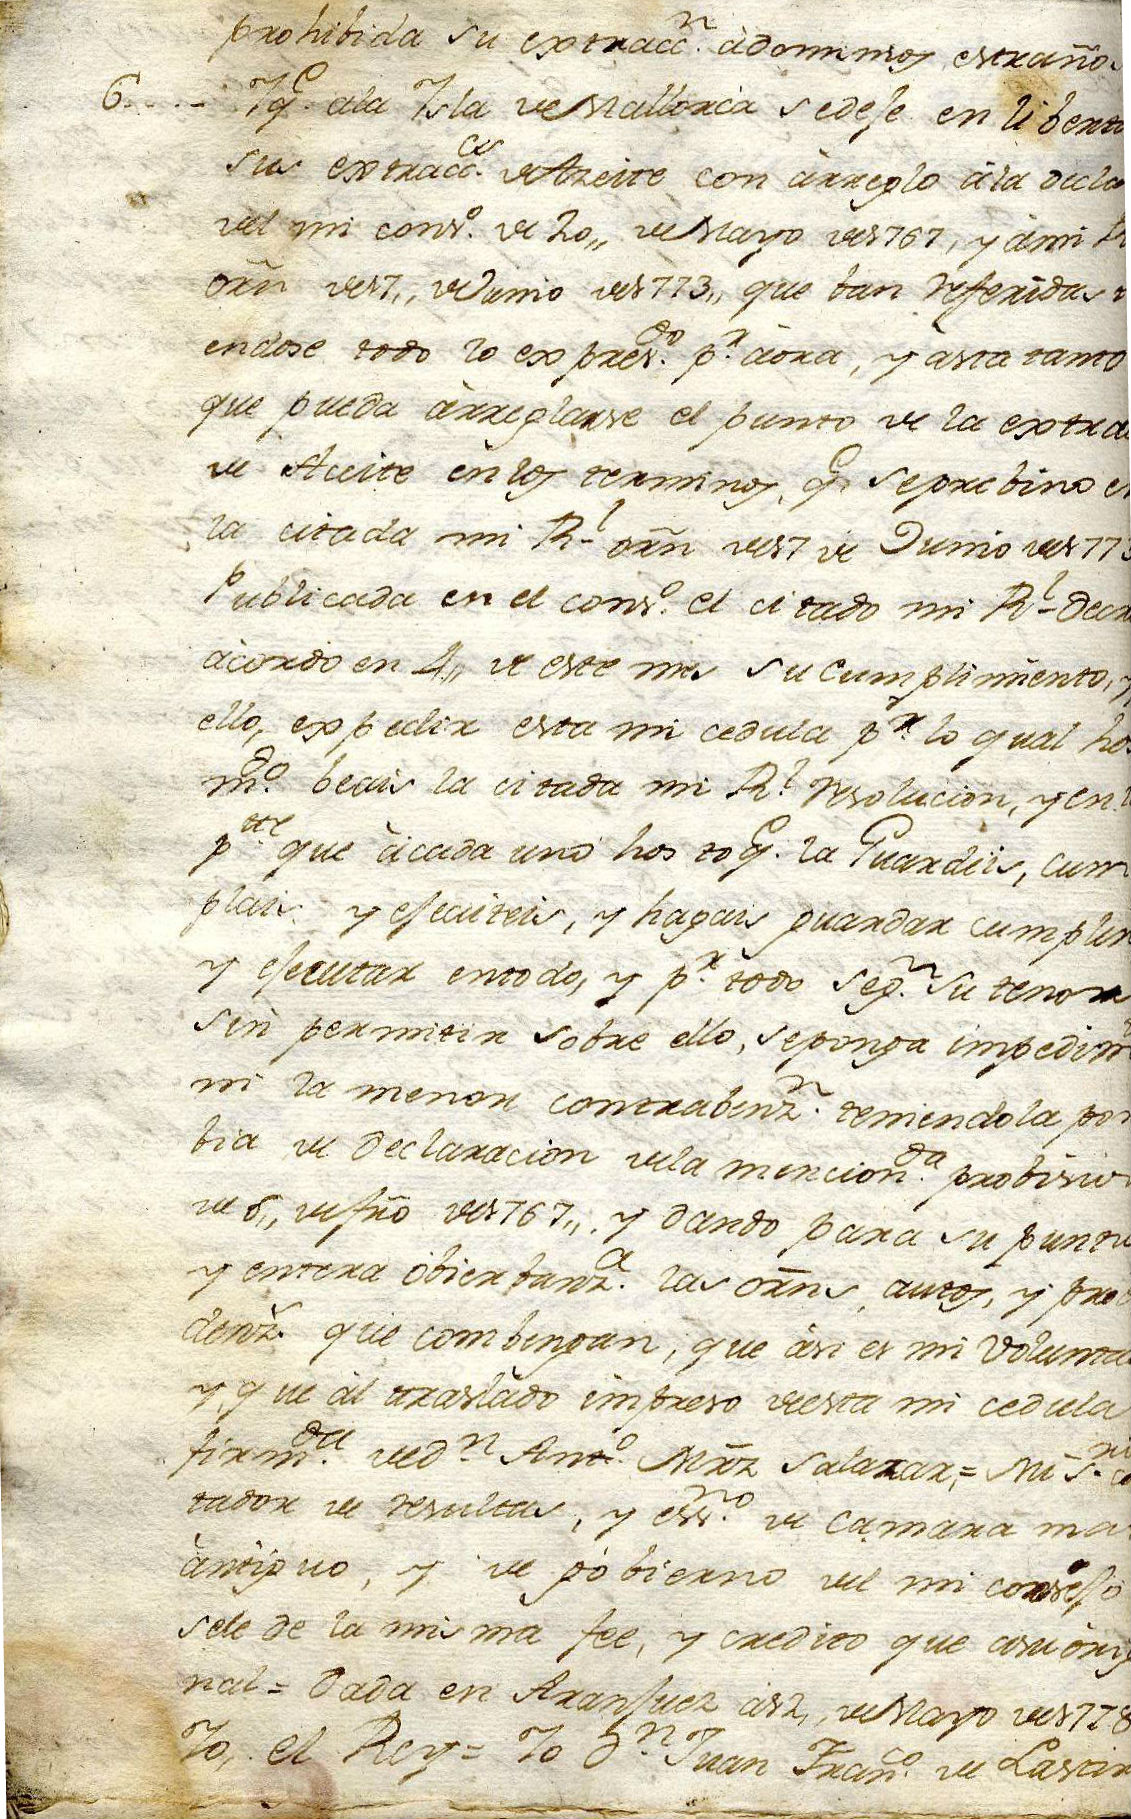 prohibida su extracc.n àdominios estraños
6.... Yq.e ala Ysla de Mallorca sedeje en libert
sus extracc.es de Azeite con àrreglo àla decla
del mi cons.o de 20,, de Mayo de 1767, y àmi R
orñ de 17,, de Junio de 1773,, que ban referidas
endose todo lo expres.do p.r àora, y asta tanto
que pueda àrreglarse el punto de la extrac
de Aceite èn los terminos, q.e seprebino en
la citada mi R.l orñ de 17 de Junio de 1773
Publicada en el cons.o el citado mi R.l decr
àcordo en 4,, de este mes su cumplimiento, y
ello, expedir esta mi cedula p.r lo qual hos
m.do beais la citada mi R.l resolucion, y en l
p.tte que àcada uno hos toq.e la Guardeis, cum
plais y ejecuteis, y hagais guardar cumplir
y ejecutar entodo, y p.r todo seg.n su tenor
sin permitir sobre ello, seponga impedim
ni la menor contrabenz.n teniendola por
bia de declaracion dela mencion.da probision
de 6,, de de 1767,, y dando para su puntu
y entera òbserbanz.a las orñs, autos, y pro
denz.s que combengan, que àsi es mi voluntad
y que àl traslado impreso deesta mi cedula
firm.da de d.n Ant.o Mrñz Salazar,= Mi S.rio co
tador de resultas, y ess.no de camara mas
àntiguo, y de gobierno del mi consejo
sele de la misma fee, y credito que àsu òrig
nal= Dada en Aranjuez à 12,, de Mayo de 1778
Yo, el Rey= Yo D.n Juan Fran.co de Lastir